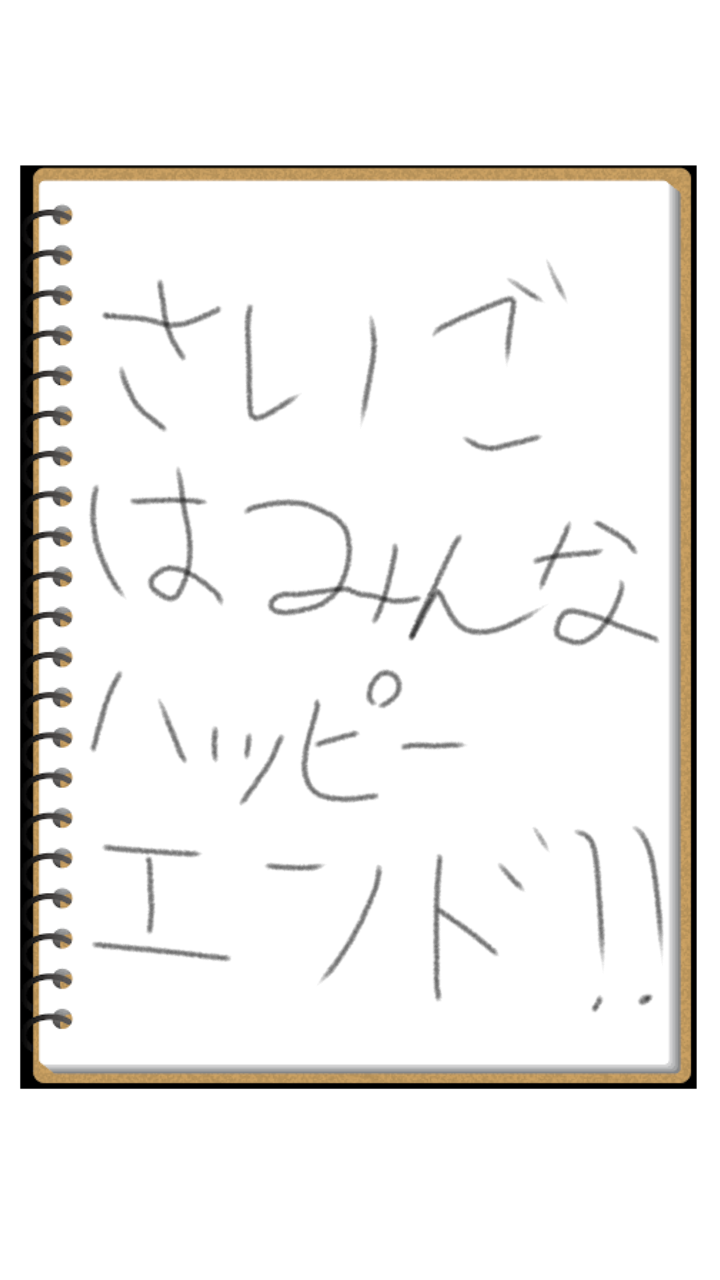 さいご
はみんな
ハッピー
エンド!!